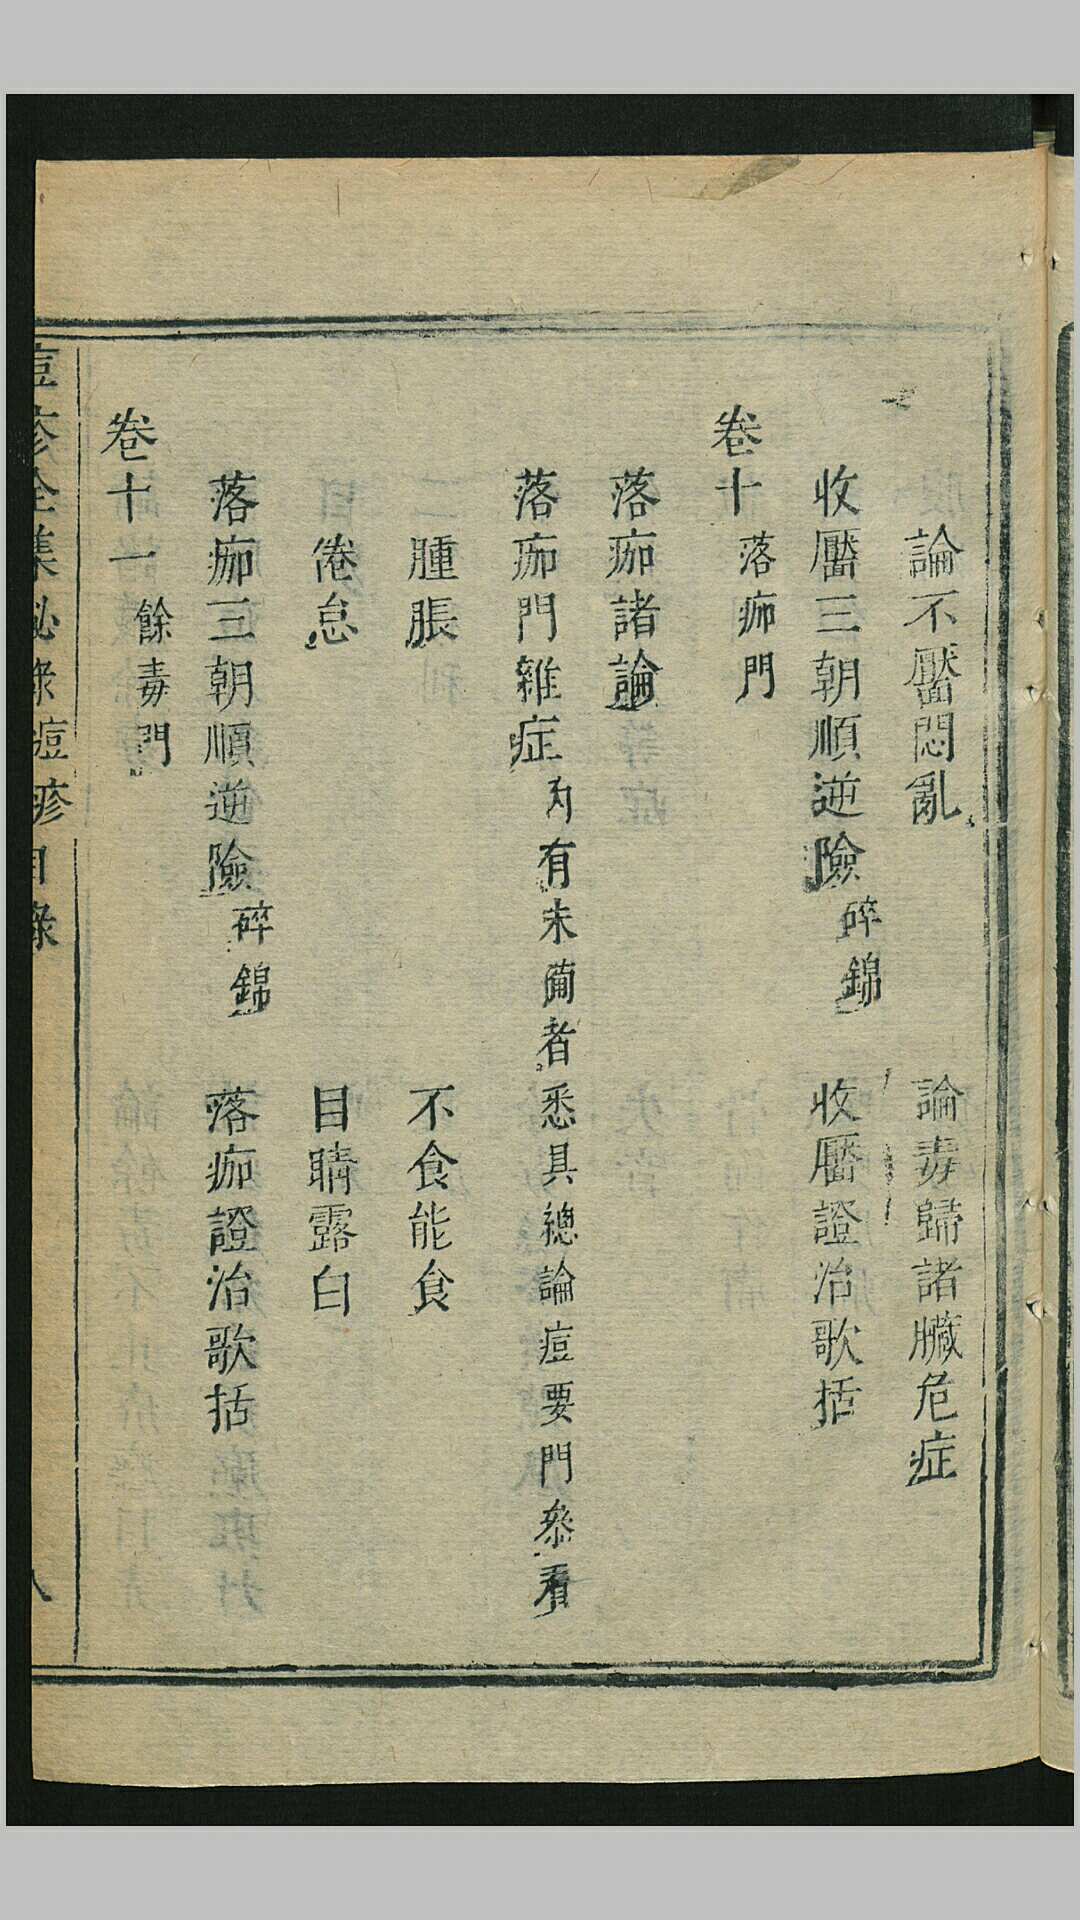 論不靨悶亂 論毒歸諸臟危症
收靨三朝順逆險碎錦 收靨證治歌括
卷十 落痂門
落痂諸論
落痂門雜症內有未備者悉具總論痘要門叅看
腫脹 不食能食
倦怠 目睛露白
落痂三朝順逆險碎錦 落痂證治歌括
卷十一 餘毒門
痘疹全集祕錄痘疹目錄 八